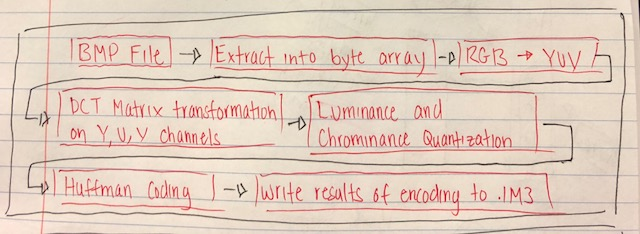 BMP File → Extract into byte array → RGB → YUV
DCT Matrix transformation Luminance and
on Y, U, V channels → Chrominance Quantization
Huffman Coding → Write results of encoding to .IM3